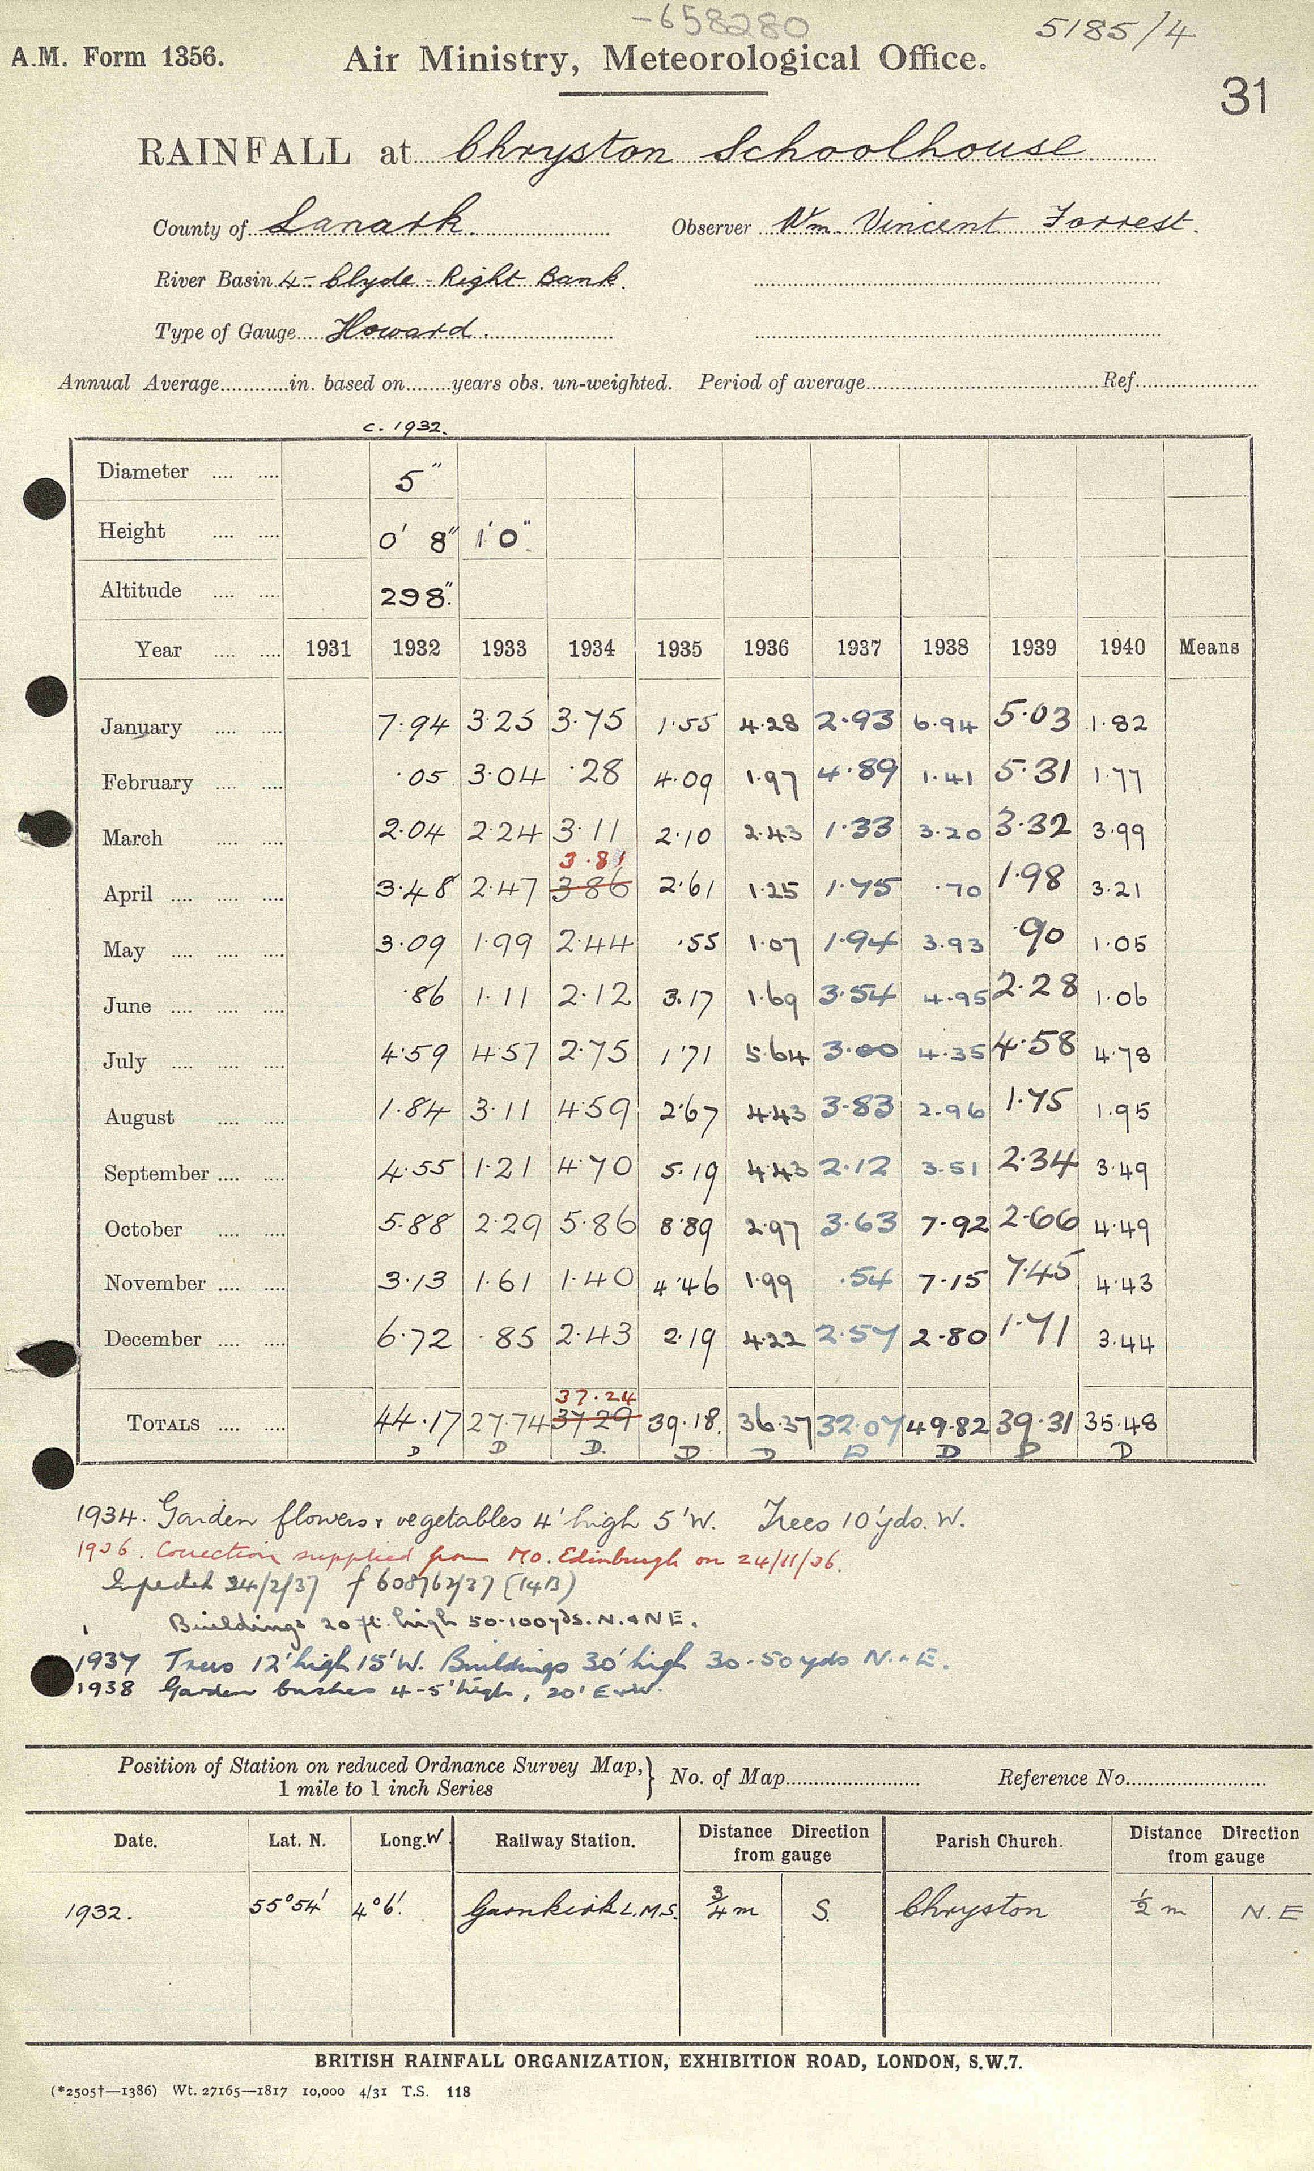 -658280
5185/4
A.M. Form 1356.
Air Ministry, Meteorological Office.
31
RAINFALL at Chryston Schoolhouse
County of Lanark. Observer Wm. Vincent Forrest.
River Basin 4- Clyde - Right Bank.
Type of Gauge Howard.
Annual Average in. based on years obs. un-weighted. Period of average Ref.
c. 1932.
Diameter 5"
Height 0' 8" 1'0"
Altitude 298".
Year 1931 1932 1933 1934 1935 1936 1937 1938 1939 1940 Means
January 7.94 3.25 3.75 1.55 4.28 2.93 6.94 5.03 1.82
February .05 3.04 .28 4.09 1.97 4.89 1.41 5.31 1.77
March 2.04 2.24 3.11 2.10 2.43 1.33 3.20 3.32 3.99
3.81
April 3.48 2.47 3.86 2.61 1.25 1.75 .70 1.98 3.21
May 3.09 1.99 2.44 .55 1.07 1.94 3.93 .90 1.05
June .86 1.11 2.12 3.17 1.69 3.54 4.95 2.28 1.06
July 4.59 4.57 2.75 1.71 5.64 3.00 4.35 4.58 4.78
August 1.84 3.11 4.59 2.67 4.43 3.83 2.96 1.75 1.95
September 4.55 1.21 4.70 5.19 4.43 2.12 3.51 2.34 3.49
October 5.88 2.29 5.86 8.89 2.97 3.63 7.92 2.66 4.49
November 3.13 1.61 1.40 4.46 1.99 .54 7.15 7.45 4.43
December 6.72 .85 2.43 2.19 4.22 2.57 2.80 1.71 3.44
37.24
TOTALS 44.17 27.74 37.29 39.18 36.37 32.07 49.82 39.31 35.48
D D D. D D D D D D
1934. Garden flowers & vegetables 4' high 5'W. Trees 10 yds. W.
1936. Correction supplied from Mo. Edinburgh on 24/11/36.
24/2/37 f 608762/37 (14B)
Buildings 20 ft. high 50-100yds. N. & NE.
1937 Trees 12' high 15'W. Buildings 30' high 30-50yds N. & E.
1938 Garden bushes 4-5' high, 20' E & W.
Position of Station on reduced Ordnance Survey Map,} No. of Map Reference No.
1 mile to 1 inch Series
Date. Lat. N. Long. W. Railway Station. Distance Direction from gauge Parish Church. Distance Direction from gauge
1932. 55°54' 4°6'. Garnkirk L.M.S. 3/4 m S. Chryston 1/2 m N.E
BRITISH RAINFALL ORGANIZATION, EXHIBITION ROAD, LONDON, S.W.7.
(*2505†—1386) Wt. 27165—1817 10,000 4/31 T.S. 118